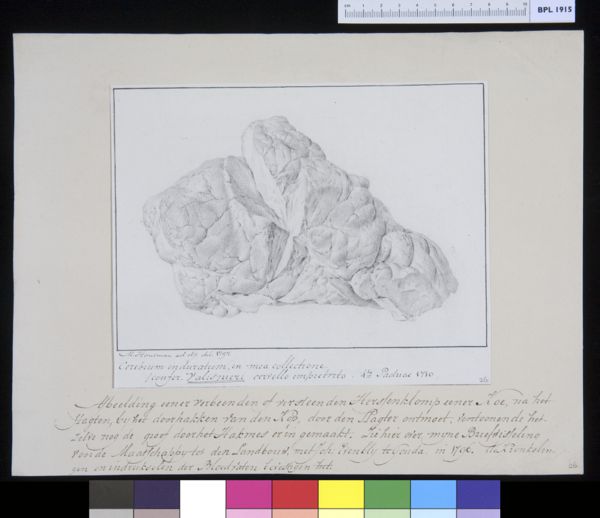 BPL 1915
M. Houtman ad viv. del. 1791
Cerebrum induratum, in mea collectione
(confer. Valisnieri cervello impietrito. 4to Padua 1710.
26
Afbeelding eener verbeenden of versteenden Herssenklomp eener Koe, na het
slagten, by het doorhakken van den Kop, door den Slagter ontmoet, vertoonende het-
zelve nog de groef door het Hakmes er in gemaakt. Zie hier over, myne Briefwisseling
van de Maatschappy tot den Landbouw, met te Gouda in
en indrukselen der Bloedvaten het
26